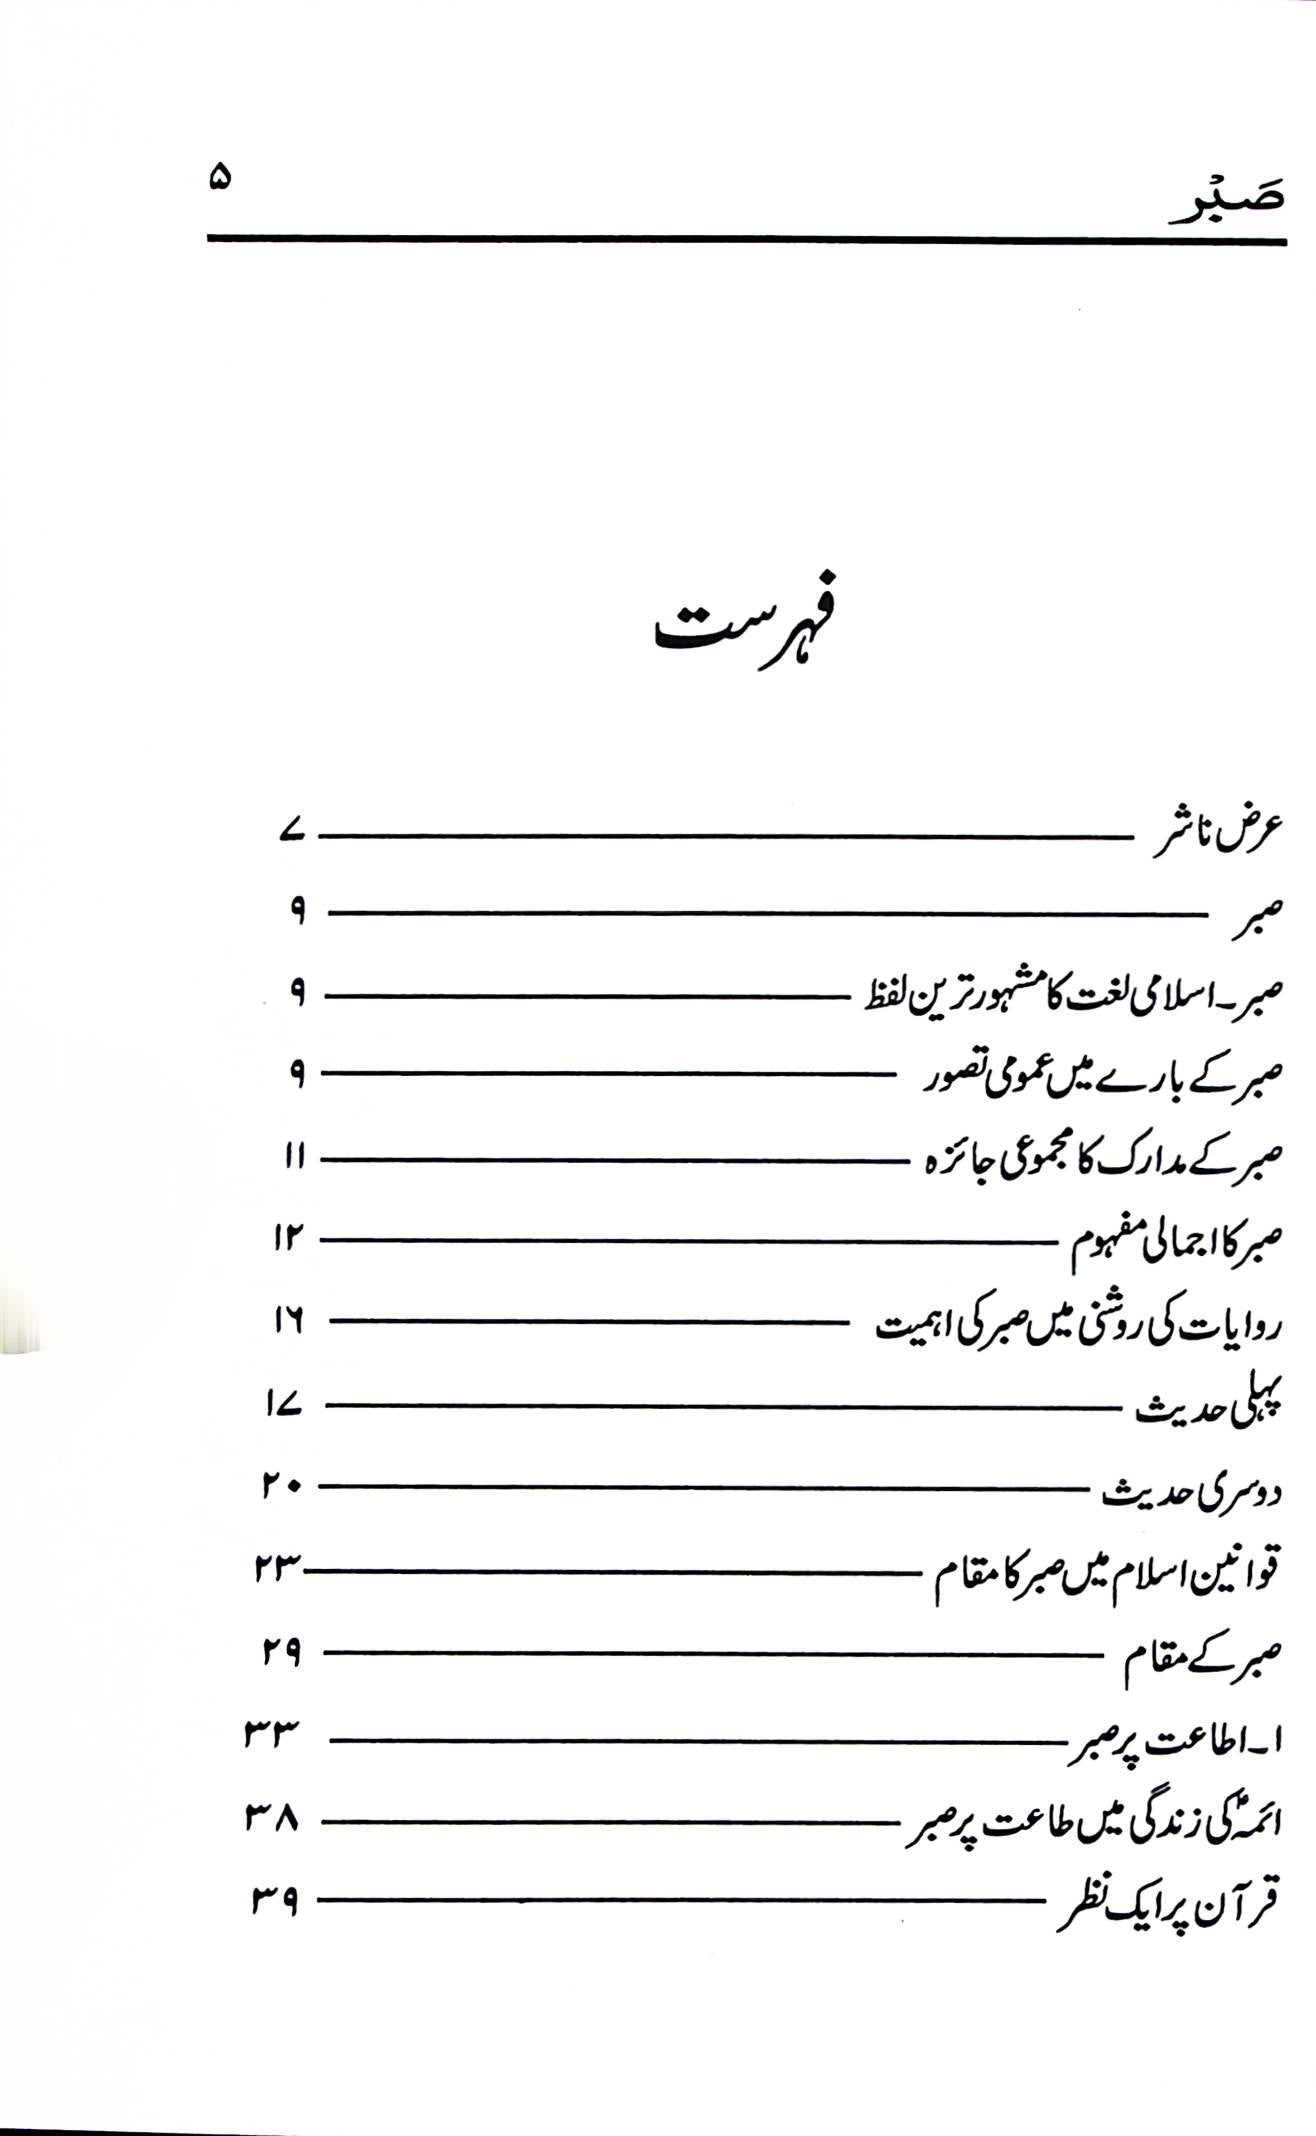 صَبْر ۵
فہرست
عرض ناشر ۷
صبر ۹
صبر۔اسلامی لغت کا مشہور ترین لفظ ۹
صبر کے بارے میں عمومی تصور ۹
صبر کے مدارک کا مجموعی جائزہ ۱۱
صبر کا اجمالی مفہوم ۱۲
روایات کی روشنی میں صبر کی اہمیت ۱۶
پہلی حدیث ۱۷
دوسری حدیث ۲۰
قوانین اسلام میں صبر کا مقام ۲۳
صبر کے مقام ۲۹
۱۔اطاعت پر صبر ۳۳
ائمہؑ کی زندگی میں طاعت پر صبر ۳۸
قرآن پر ایک نظر ۳۹